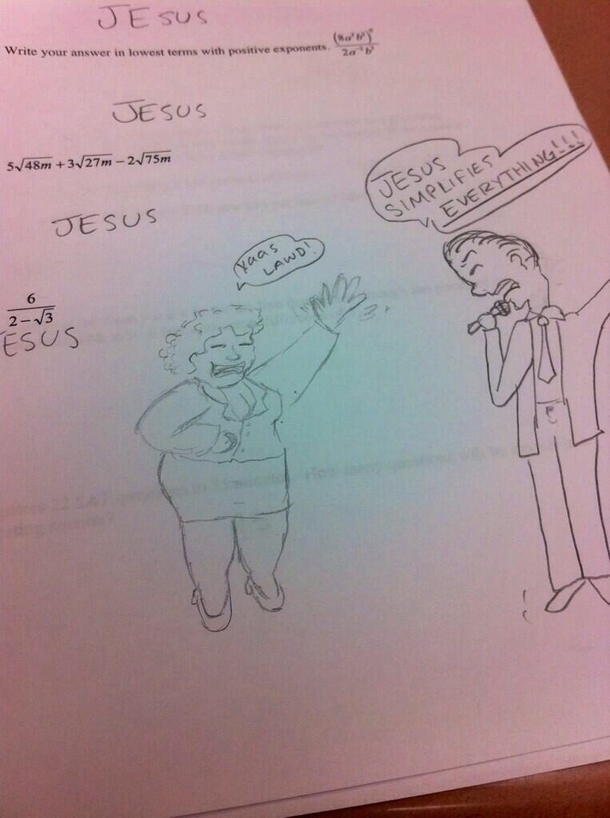 JESUS
Write your answer in lowest terms with positive exponents.
JESUS
5√48m + 3√27m − 2√75m
JESUS
JESUS
SIMPLIFIES
EVERYTHING!!!
Yaas
LAWD!
6
2 − √3
ESUS